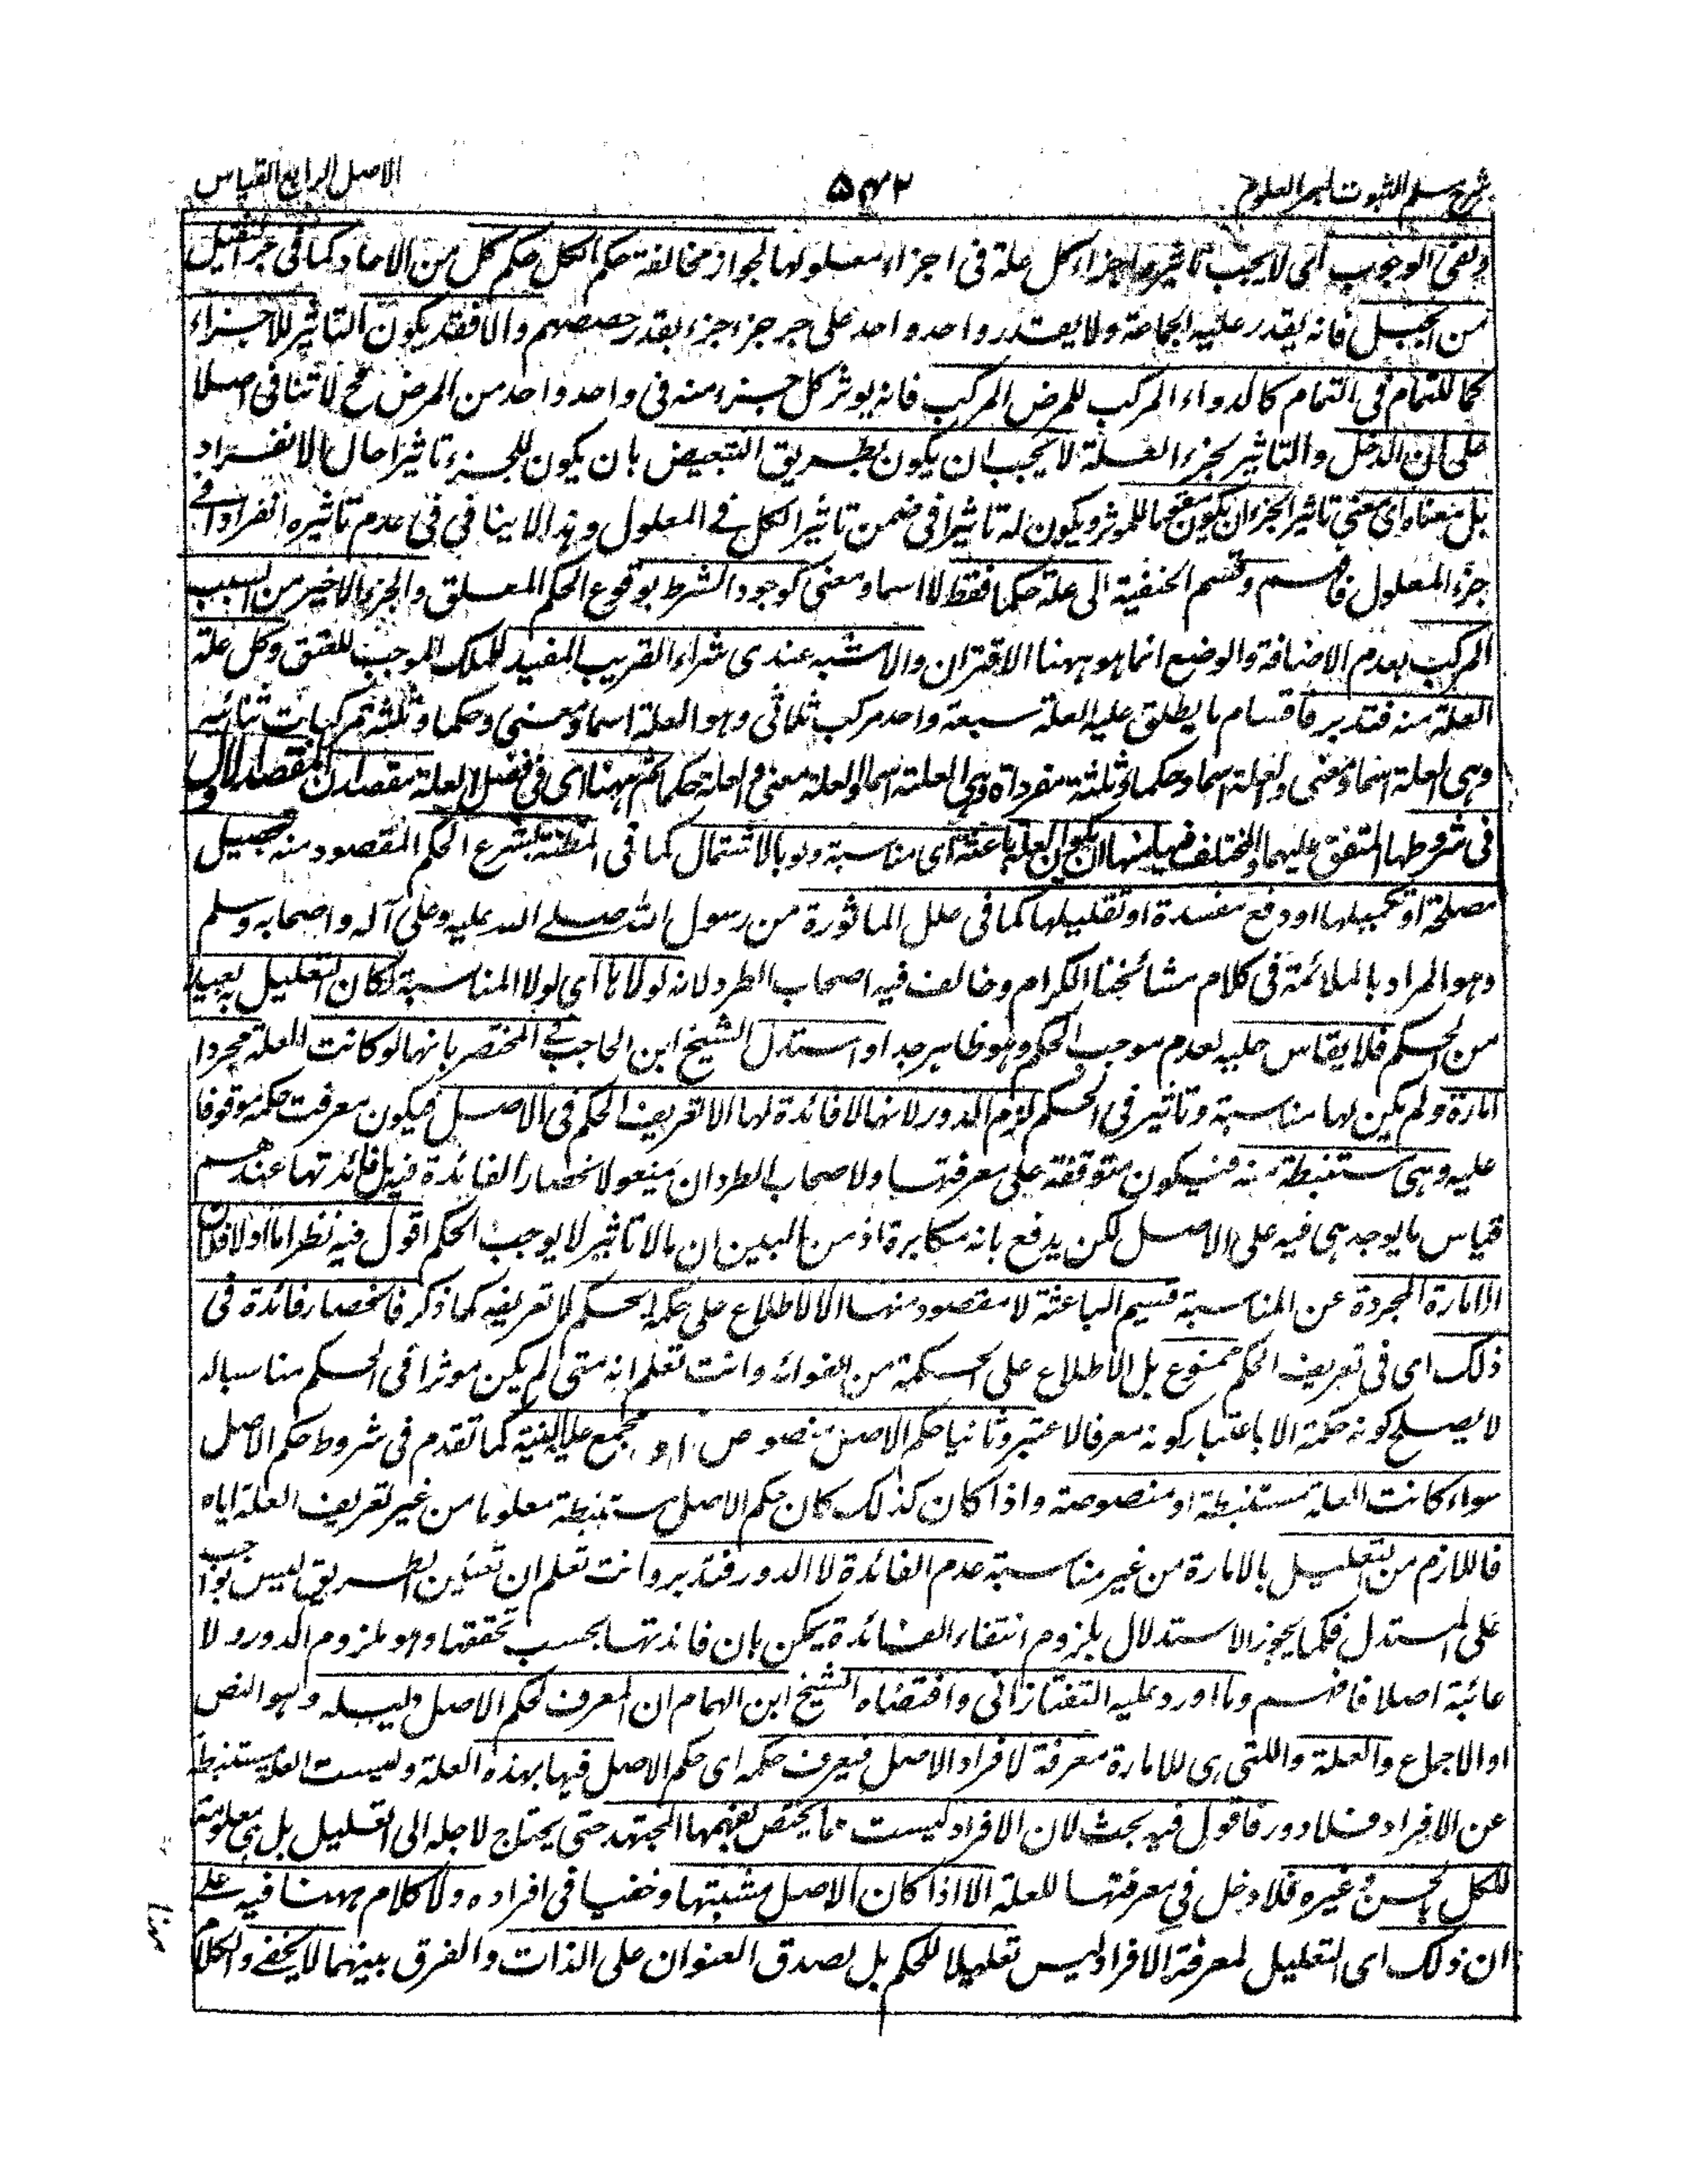 شرح مسلم الثبوت لبحر العلوم
۵۴۲
الاصل الرابع القياس
ونفى الوجوب اى لا يجب تاثير اجزاء كل علة فى اجزاء معلولها لجواز مخالفة حكم الكل حكم كل من الاحاد كما فى جر الثقيل
من الجبل فانه يقدر عليه الجماعة ولا يقتدر واحد واحد على جر جزء جزء بقدر حصصهم والا فقد يكون التاثير للاجزاء
كما للتمام فى التمام كالدواء المركب للمرض المركب فانه يوثر كل جزء منه فى واحد واحد من المرض فح لا تنافى اصلا
على ان الدخل والتاثير لجزء العلة لا يجب ان يكون بطريق التبعيض بان يكون للجزء تاثيرا حال الانفراد
بل معناه اى معنى تاثير الجزء ان يكون مقوما للموثر ويكون له تاثيرا فى ضمن تاثير الكل فے المعلول وهذا لا ينافى فى عدم تاثيره انفرادا فے
جزء المعلول فافهم وقسم الحنفية الى علة حكما فقط لا اسما ومعنى كوجود الشرط بوقوع الحكم المعلق والجزء الاخير من السبب
المركب لعدم الاضافة والوضع انما هو ههنا الاقتران والاشبه عندى شراء القريب المفيد للملك الموجب للعتق وكل علة
العلة منه فتدبر فاقسام ما يطلق عليه العلة سبعة واحد مركب ثلاثى وهو العلة اسما ومعنى وحكما وثلثة مركبات ثنائية
وهى العلة اسما ومعنى والعلة اسما وحكما وثلثة مفرداة وهى العلة اسما والعلة معنى والعلة حكما ثم ههنا اى فى فصل العلة مقصدان المقصد الاول
فى شروطها المتفق عليها والمختلف فيها منها ان يكون العلة باعثة اى مناسبة ولو بالاشتمال كما فى المظنة لشرع الحكم المقصود منه تحصيل
مصلحة او تكميلها او دفع مفسدة او تقليلها كما فى علل الماثورة من رسول الله صلے الله عليه وعلى آله واصحابه وسلم
وهو المراد بالملائمة فى كلام مشائخنا الكرام وخالف فيه اصحاب الطرد لانه لولاها اى لولا المناسبة لكان التعليل به بعيدا
من الحكم فلا يقاس عليه لعدم موجب الحكم وهو ظاهر جدا واستدل الشيخ ابن الحاجب فے المختصر بانها لو كانت العلة مجردا
امارة ولم يكن لها مناسبة وتاثير فى الحكم لزم الدور لانها لا فائدة لها الا تعريف الحكم فى الاصل فيكون معرفت حكمه موقوفا
عليه وهى مستنبطة منه فيكون متوقفة على معرفتها ولاصحاب الطرد ان يمنعوا انحصار الفائدة فيه بل فائدتها عندهم
قياس ما يوجد هى فيه على الاصل لكن يدفع بانه مكابرة اذ من البين ان مالا تاثير لا يوجب الحكم اقول فيه نظر اما اولا فلان
الامارة المجردة عن المناسبة قسيم الباعثة لا مقصود منها الا الاطلاع على حكمة الحكم لا تعريفه كما ذكر فانحصار فائدة فى
ذلك اى فى تعريف الحكم ممنوع بل الاطلاع على الحكمة من الفوائد وانت تعلم انه متى لم يكن موثرا فى الحكم مناسبا له
لا يصلح كونه حكمة الا باعتبار كونه معرفا لا عتبر وثانيا حكم الاصل منصوص او مجمع عليه البتة كما تقدم فى شروط حكم الاصل
سواء كانت العلة مستنبطة او منصوصة واذا كان كذلك كان حكم الاصل مستنبطة معلوما من غير تعريف العلة اياه
فاللازم من التعليل بالامارة من غير مناسبة عدم الفائدة لا الدور فتدبر وانت تعلم ان تعيين الطريق ليس بواجب
على المستدل فكما يجوز الاستدلال بلزوم انتفاء الفائدة يمكن بان فائدتها بحسب تحققها وهو ملزوم الدور ولا
عائبة اصلا فافهم وما اورد عليه التفتازانى واقتفاه الشيخ ابن الهمام ان المعرف لحكم الاصل دليله وهو النص
او الاجماع والعلة واللتى هى للامارة معرفة لافراد الاصل فيعرف حكمه اى حكم الاصل فيها بهذه العلة وليست العلة مستنبطة
عن الافراد فلا دور فاقول فيه بحث لان الافراد ليست مما يختص بفهمها المجتهد حتى يحتاج لاجله الى التعليل بل هى معلومة
للكل بالحس وغيره فلا دخل فى معرفتها للعلة الا اذا كان الاصل مشتبها وخفيا فى افراده ولا كلام ههنا فيه على
ان ذلك اى التعليل لمعرفة الافراد ليس تعليلا للحكم بل لصدق العنوان على الذات والفرق بينهما لا يخفے والكلام
ههنا